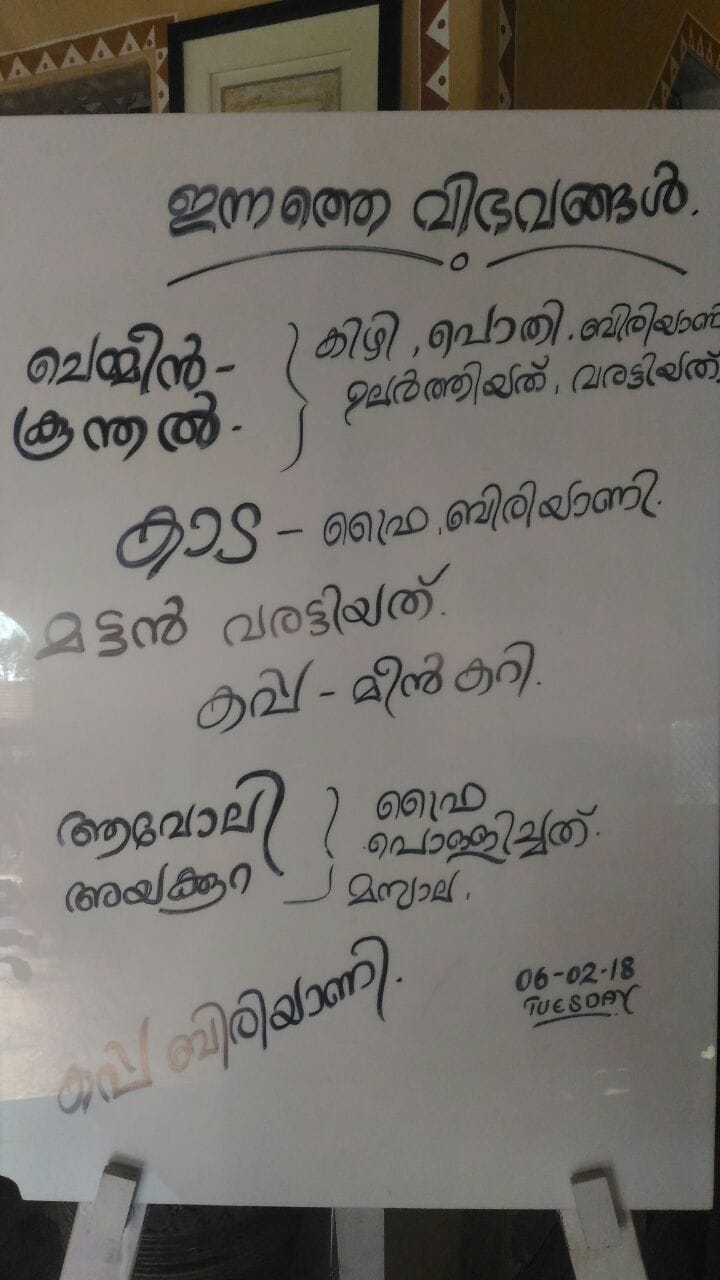 ഇന്നത്തെ വിഭവങ്ങൾ.
ചെമ്മീൻ- കിഴി, പൊതി. ബിരിയാണി
കൂന്തൽ. ഉലർത്തിയത്, വരട്ടിയത്
കാട - ഫ്രൈ, ബിരിയാണി.
മട്ടൻ വരട്ടിയത്.
കപ്പ - മീൻ കറി.
ആവോലി ഫ്രൈ
പൊള്ളിച്ചത്.
അയക്കൂറ മസാല.
കപ്പ ബിരിയാണി.
06-02-18
TUESDAY